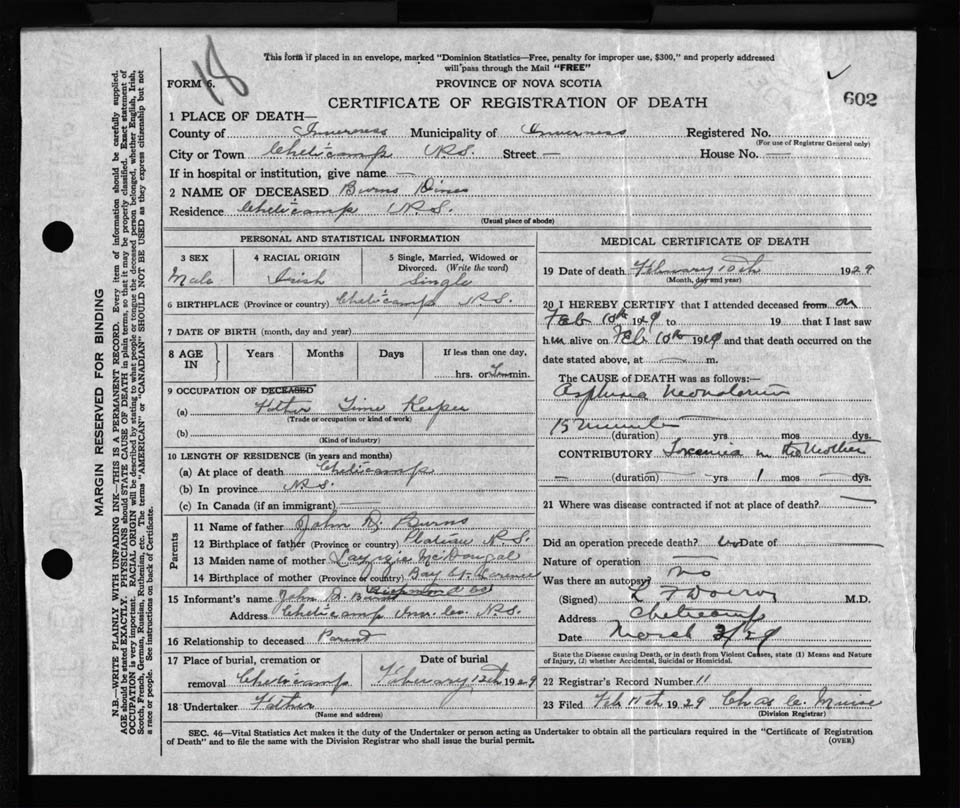 This form if placed in an envelope, marked "Dominion Statistics—Free, penalty for improper use, $300," and properly addressed
will pass through the Mail "FREE"
18
FORM 6.
PROVINCE OF NOVA SCOTIA
CERTIFICATE OF REGISTRATION OF DEATH
602
1 PLACE OF DEATH—
County of Inverness Municipality of Inverness Registered No.
(For use of Registrar General only)
City or Town Cheticamp N.S. Street — House No. —
If in hospital or institution, give name —
2 NAME OF DECEASED Burns
Residence Cheticamp N.S.
(Usual place of abode)
PERSONAL AND STATISTICAL INFORMATION
3 SEX 4 RACIAL ORIGIN 5 Single, Married, Widowed or
Divorced. (Write the word)
Male Irish Single
6 BIRTHPLACE (Province or country) Cheticamp N.S.
7 DATE OF BIRTH (month, day and year)
8 AGE IN Years Months Days If less than one day,
hrs. or min.
9 OCCUPATION OF DECEASED
(a) Father Time Keeper
(Trade or occupation or kind of work)
(b)
(Kind of industry)
10 LENGTH OF RESIDENCE (in years and months)
(a) At place of death Cheticamp
(b) In province N.S.
(c) In Canada (if an immigrant)
Parents
11 Name of father John D. Burns
12 Birthplace of father (Province or country) N.S.
13 Maiden name of mother McDougal
14 Birthplace of mother (Province or country) Bay St. Lawrence
15 Informant's name John D. Burns
Address Cheticamp Inv. Co. N.S.
16 Relationship to deceased Parent
17 Place of burial, cremation or Date of burial
removal Cheticamp February 12th 1929
18 Undertaker Father
(Name and address)
MEDICAL CERTIFICATE OF DEATH
19 Date of death February 10th 1929
(Month, day and year)
20 I HEREBY CERTIFY that I attended deceased from on
Feb 10th 1929 to 19 that I last saw
h im alive on Feb 10th 1929 and that death occurred on the
date stated above, at — m.
The CAUSE OF DEATH was as follows:—
Asphyxia Neonatorum
15 minutes
(duration) yrs mos dys.
CONTRIBUTORY Toxemia in the Mother
— (duration) — yrs 1 mos — dys
21 Where was disease contracted if not at place of death? —
Did an operation precede death? No Date of —
Nature of operation —
Was there an autopsy? No
(Signed) M.D.
Address Cheticamp
Date March 2/29
State the Disease causing Death, or in death from Violent Causes, state (1) Means and Nature
of Injury, (2) whether Accidental, Suicidal or Homicidal.
22 Registrar's Record Number 11
23 Filed Feb 11th 1929 Chas C. Muise
(Division Registrar)
SEC. 46—Vital Statistics Act makes it the duty of the Undertaker or person acting as Undertaker to obtain all the particulars required in the "Certificate of Registration
of Death" and to file the same with the Division Registrar who shall issue the burial permit.
(OVER)
MARGIN RESERVED FOR BINDING
N.B.—WRITE PLAINLY WITH UNFADING INK—THIS IS A PERMANENT RECORD. Every item of information should be carefully supplied.
AGE should be stated EXACTLY. PHYSICIANS should STATE CAUSE OF DEATH in plain terms, so that it may be properly classified. Exact statement of
OCCUPATION is very important. RACIAL ORIGIN will be described by stating to what people or tongue the deceased person belonged, whether English, Irish,
Scotch, French, German, Russian, Ruthenian, etc. The terms "AMERICAN" or "CANADIAN" SHOULD NOT BE USED as they express citizenship but not
a race or people. See instructions on back of Certificate.